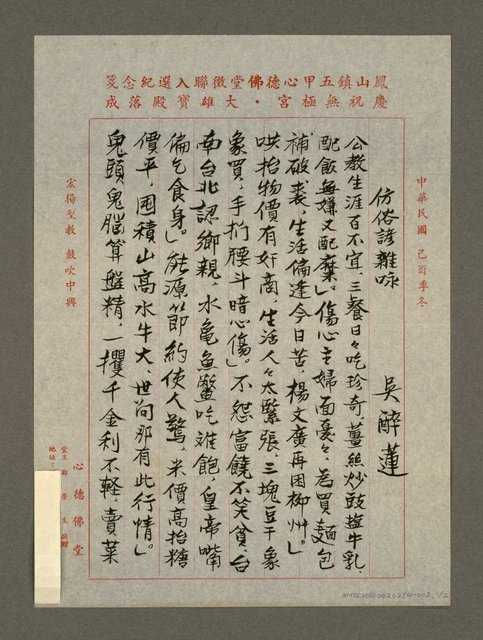 鳳山鎮五甲心德佛堂徵聯入選紀念箋
慶祝無極宮・大雄寶殿落成
中華民國 己酉季冬
仿俗諺雜咏 吳醉蓮
公教生涯百不宜、三餐日々吃珍奇、薑絲炒豉塩牛乳、
配飯無嫌又配棄。」傷心主婦面憂々、為買麵包
補破裘、生活偏逢今日苦、楊文廣再困柳州。」
哄抬物價有奸商、生活人々太緊張、三塊豆干象
象買、手扪腰斗暗心傷。」不怨富饒不笑貧、台
南台北認鄉親、水亀魚鱉吃雖飽、皇帝嘴
偏乞食身。」能源節約使人驚、米價高抬糖
價平、囤積山高水牛大、世尚那有此行情。」
鬼頭鬼腦算盤精、一攫千金利不軽、賣菜
宏揚聖教 鼓吹中興
心德佛堂
堂主 鄭榮
地址：